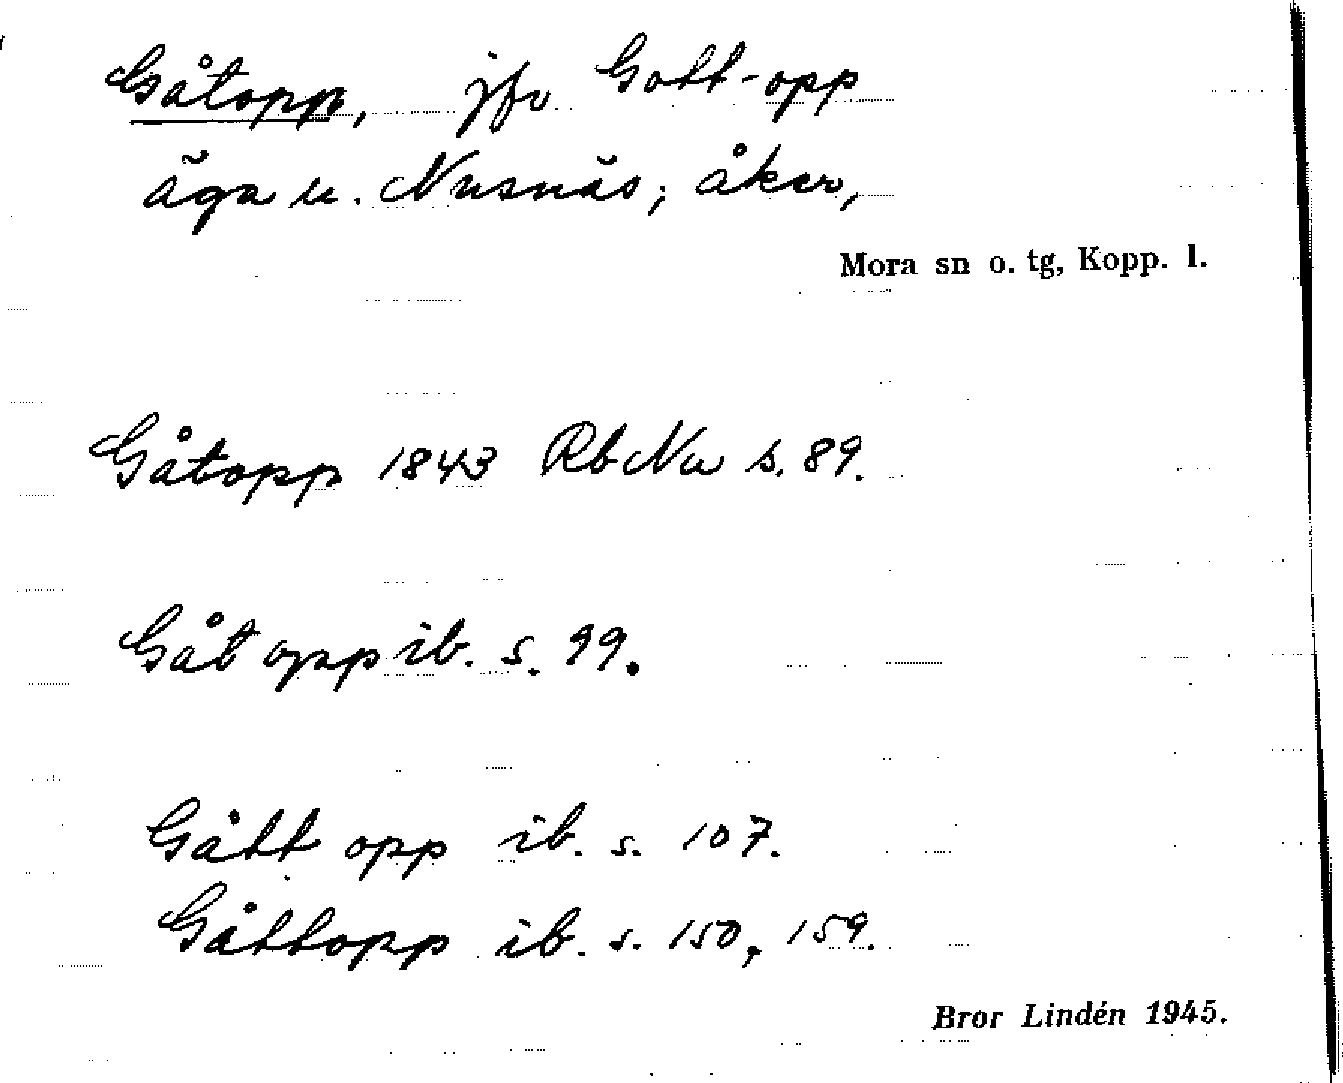 Gåtopp, jfr Gott-opp
äga u. Nusnäs; åker,
Mora sn o. tg, Kopp. l.
Gåtopp 1843 RbNu s. 89.
Gåt opp ib. s. 99.
Gått opp ib. s. 107.
Gåttopp ib. s. 150, 159.
Bror Lindén 1945.